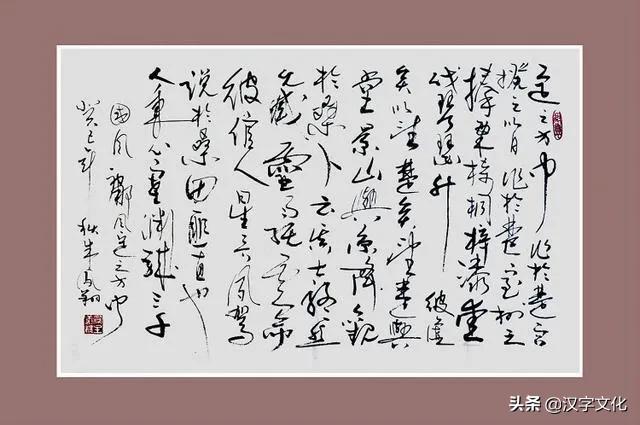 定之方中 作於楚宮
揆之以日 作於楚室 树之
榛栗椅桐梓漆 爰
伐琴瑟 升 彼虛
矣以望楚矣望楚與
堂景山與京降觀
於桑卜云其吉終焉
允臧 靈雨既零命
彼倌人 星言夙駕
说於桑田匪直也
人秉心塞渊騋三千
國風 鄘風定之方中
癸巳年 秋朱凤翔
头条 @汉字文化